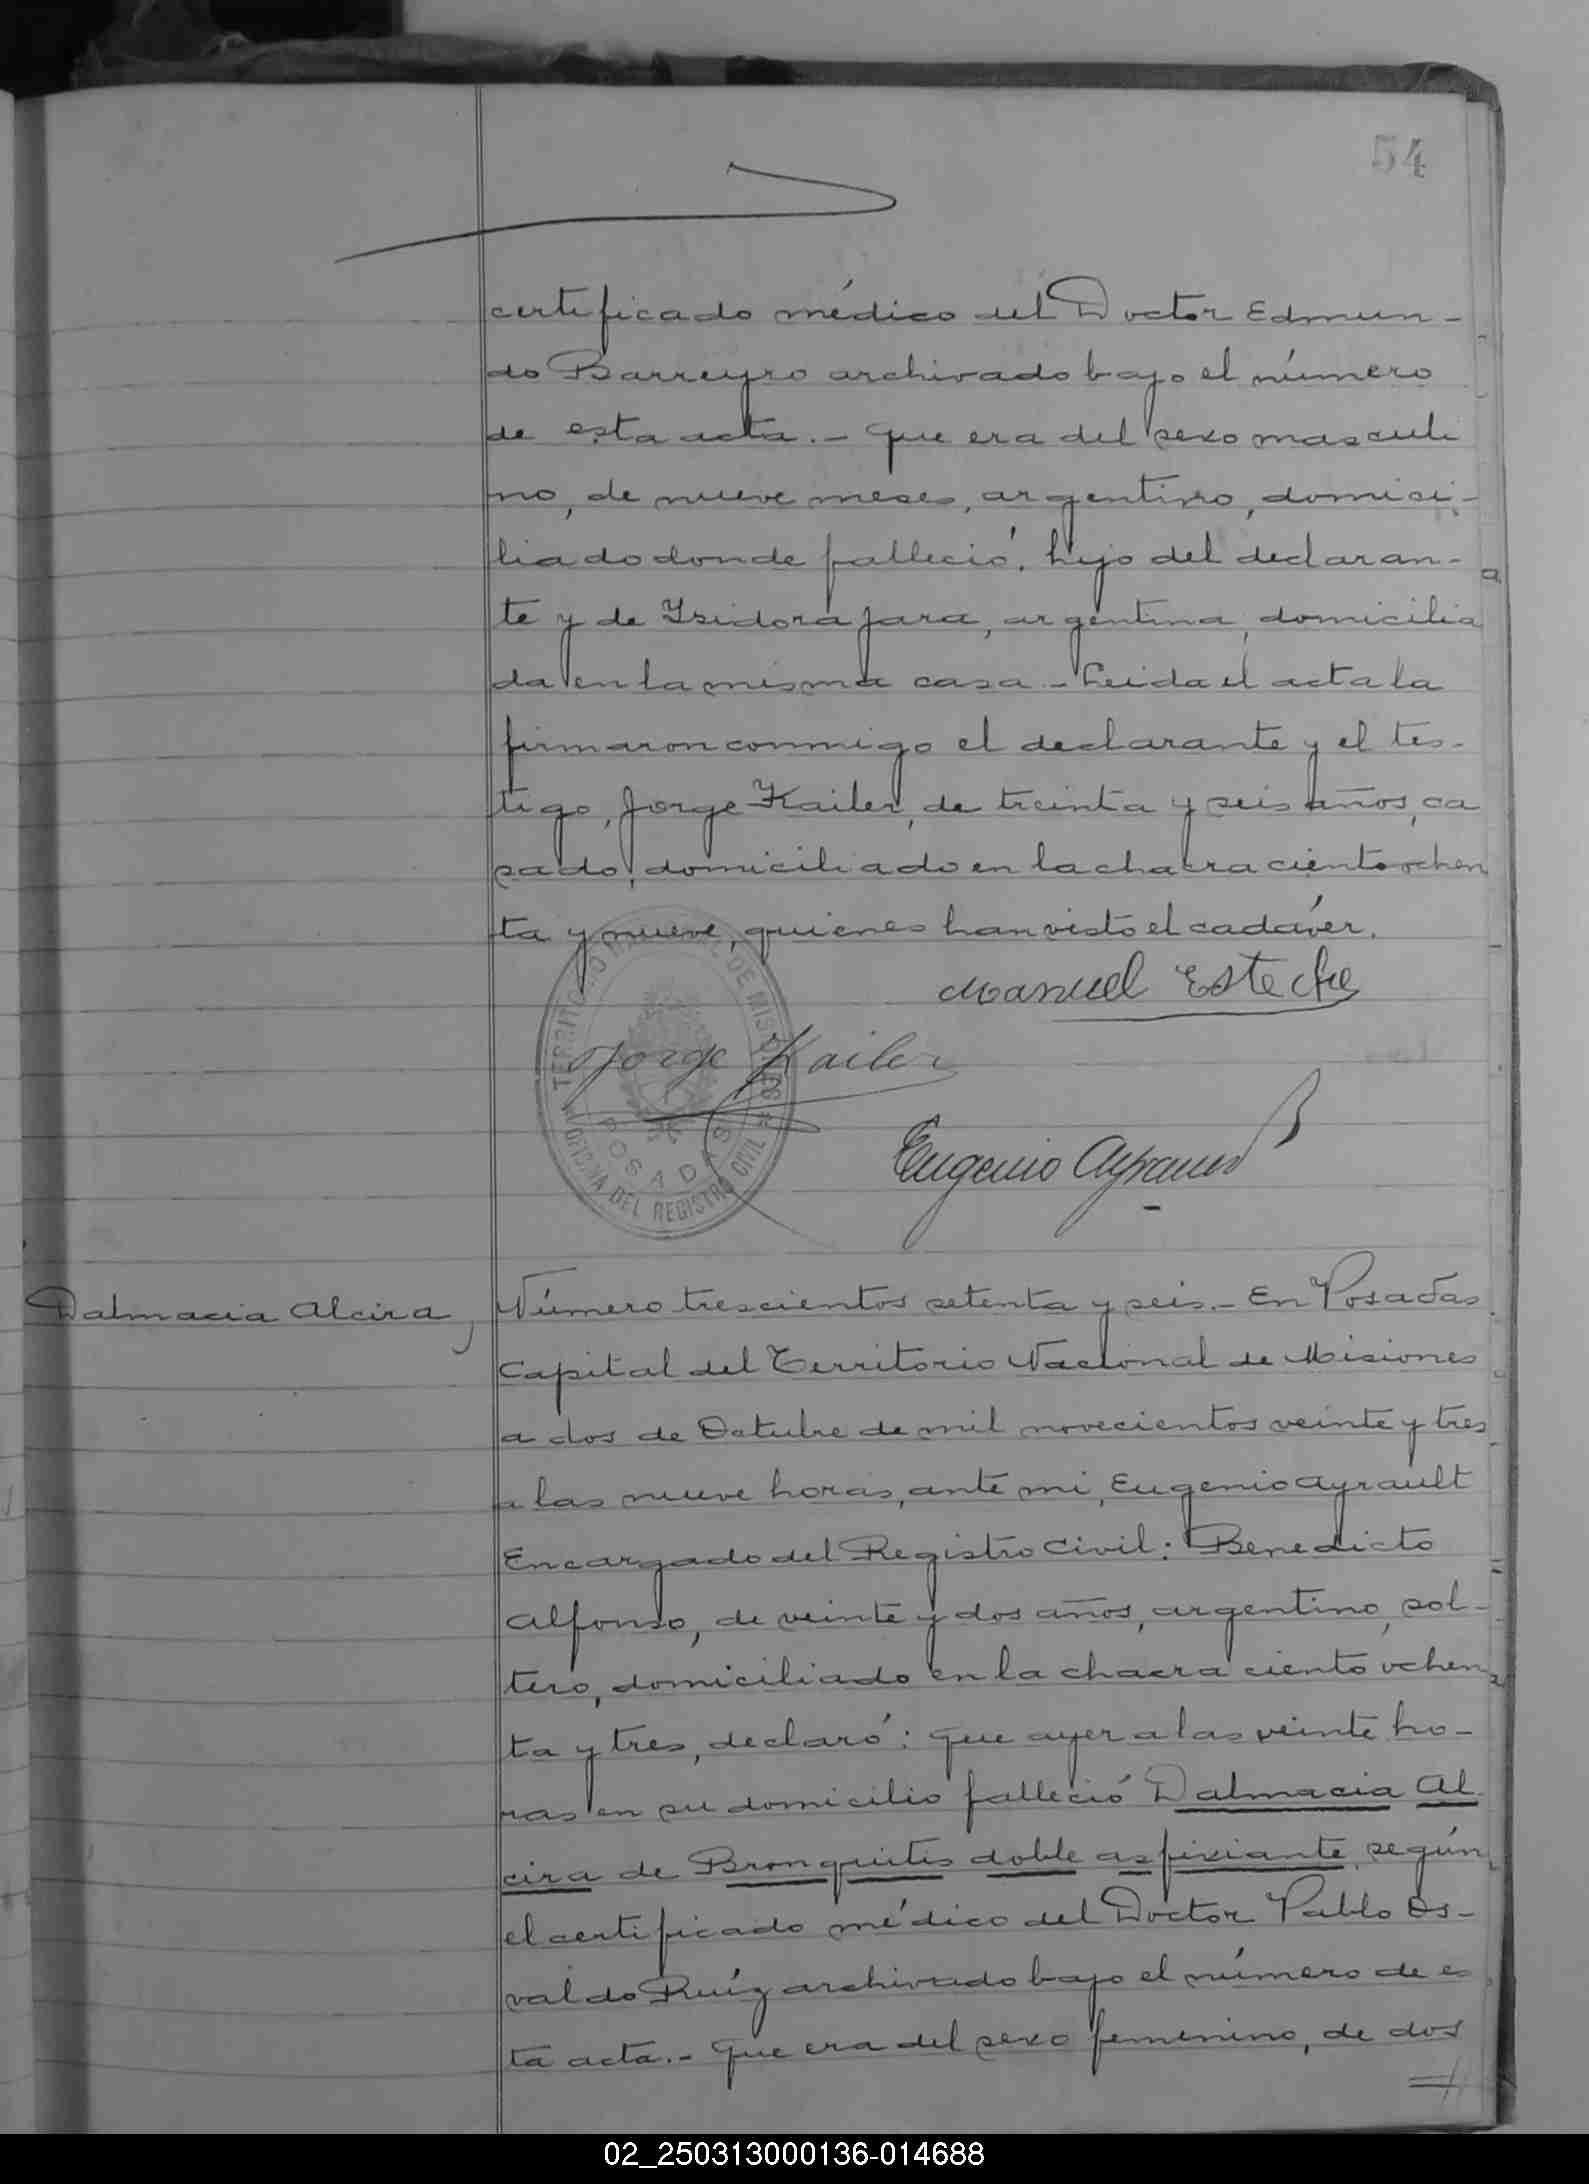 54
certificado médico del Doctor Edmun-
do Barreyro archivado bajo el número
de esta acta.- Que era del sexo masculi
no, de nueve meses, argentino, domici-
liado donde falleció, hijo del declaran-
te y de Isidora Jara, argentina, domicilia
da en la misma casa.- Leida el acta la
firmaron conmigo el declarante y el tes-
tigo, Jorge Kailer, de treinta y seis años, ca
sado, domiciliado en la chacra ciento ochen
ta y nueve, quienes han visto el cadáver.
Manuel Esteche
Jorge Kailer
TERRITORIO NACIONAL DE MISIONES
POSADAS
OFICINA DEL REGISTRO CIVIL
Eugenio Ayrault
Dalmacia Alcira,
Número trescientos setenta y seis.- En Posadas
Capital del Territorio Nacional de Misiones
a dos de Octubre de mil novecientos veinte y tres
a las nueve horas, ante mi, Eugenio Ayrault
Encargado del Registro Civil: Benedicto
Alfonso, de veinte y dos años, argentino, sol-
tero, domiciliado en la chacra ciento ochen
ta y tres, declaró: Que ayer a las veinte ho-
ras en su domicilio falleció Dalmacia Al
cira de Bronquitis doble asfixiante, según
el certificado médico del Doctor Pablo Os-
valdo Ruíz archivado bajo el número de es
ta acta.- Que era del sexo femenino, de dos
02_250313000136-014688